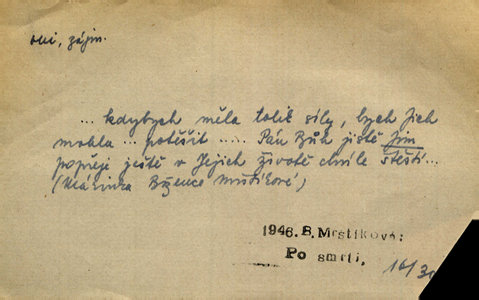 oni, zájm.
... kdybych měla tolik síly, bych Jich
mohla ... potěšit ..... Pán Bůh jistě Jim
popřeje ještě v Jejich životě chvíle štěstí...
(Mářinka Bžence Mrštíkové)
1946. B. Mrštíková:
Po smrti.
16/30